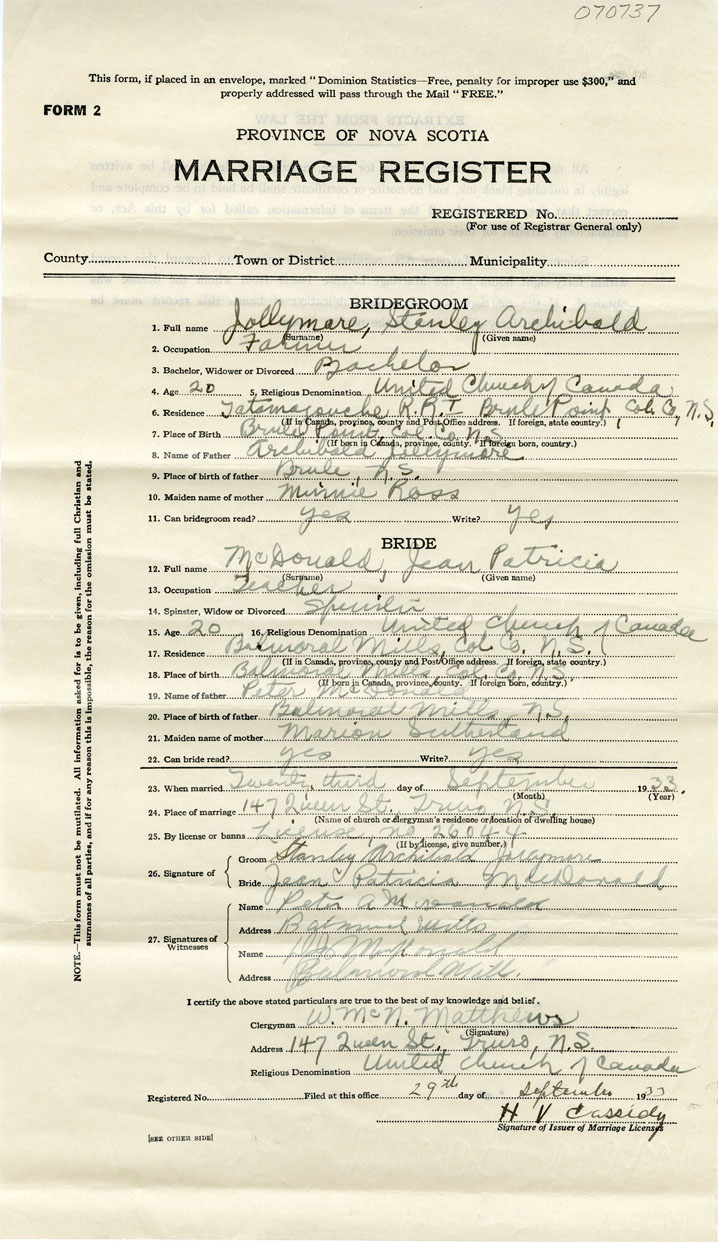 070737
This form, if placed in an envelope, marked "Dominion Statistics—Free, penalty for improper use $300," and
properly addressed will pass through the Mail "FREE."
FORM 2
PROVINCE OF NOVA SCOTIA
MARRIAGE REGISTER
REGISTERED No.
(For use of Registrar General only)
County Town or District Municipality
BRIDEGROOM
1. Full name Jollymore, Stanley Archibald
(Surname) (Given name)
2. Occupation Farmer
3. Bachelor, Widower or Divorced Bachelor
4. Age 20 5. Religious Denomination United Church of Canada
6. Residence Tatamagouche R.R.1 Brule Point, Col. Co, N.S.
(If in Canada, province, county and Post Office address. If foreign, state country.)
7. Place of Birth Brule Point, Col. Co. N.S.
(If born in Canada, province, county. If foreign born, country.)
8. Name of Father Archibald Jollymore
9. Place of birth of father Brule, N.S.
10. Maiden name of mother Minnie Ross
11. Can bridegroom read? yes Write? Yes
BRIDE
12. Full name McDonald, Jean Patricia
(Surname) (Given name)
13. Occupation Teacher
14. Spinster, Widow or Divorced Spinster
15. Age 20 16. Religious Denomination United Church of Canada
17. Residence Balmoral Mills, Col. Co. N.S.
(If in Canada, province, county and Post Office address. If foreign, state country.)
18. Place of birth Balmoral Mills, Col. Co. N.S.
(If born in Canada, province, county. If foreign born, country.)
19. Name of father Peter McDonald
20. Place of birth of father Balmoral Mills, N.S.
21. Maiden name of mother Marion Sutherland
22. Can bride read? yes Write? yes
23. When married Twenty third day of September 1933
(Month) (Year)
24. Place of marriage 147 Queen St. Truro, N.S.
(Name of church or clergyman's residence or location of dwelling house)
25. By license or banns License, no 26044
(If by license, give number.)
26. Signature of
Groom Stanley Archibald Jollymore
Bride Jean Patricia MacDonald
27. Signatures of Witnesses
Name Peter A McDonald
Address Balmoral Mills
Name McDonald
Address Balmoral Mills.
I certify the above stated particulars are true to the best of my knowledge and belief.
Clergyman W. McN. Matthews
(Signature)
Address 147 Queen St., Truro, N.S.
Religious Denomination United Church of Canada
Registered No. Filed at this office 29th day of September 1933
H V Cassidy
Signature of Issuer of Marriage Licenses
[SEE OTHER SIDE]
NOTE.—This form must not be mutilated. All information asked for is to be given, including full Christian and
surnames of all parties, and if for any reason this is impossible, the reason for the omission must be stated.